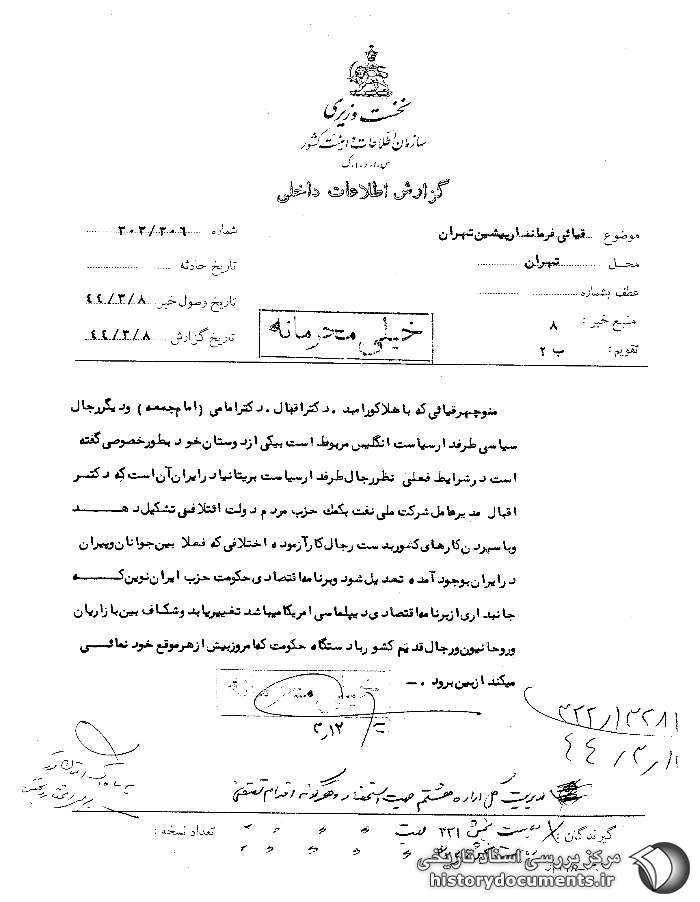 نخست وزیری
سازمان اطلاعات و امنیت کشور
س.ا.و.ا.ک
گزارش اطلاعات داخلی
موضوع قیائی فرماندار پیشین تهران
شماره ۳۰۲/۳۰۶
محل تهران
تاریخ حادثه
عطف بشماره
تاریخ وصول خبر ۴۴/۳/۸
منبع خبر : ۸
تاریخ گزارش ۴۴/۳/۸
تقویم : ب ۲
خیلی محرمانه
منوچهر قیائی که با هلاکو رامبد ، دکتر اقبال ، دکتر امامی (امام جمعه) و دیگر رجال
سیاسی طرفدار سیاست انگلیس مربوط است بیکی از دوستان خود بطور خصوصی گفته
است در شرایط فعلی نظر رجال طرفدار سیاست بریتانیا در ایران آن است که دکتر
اقبال مدیر عامل شرکت ملی نفت بکمک حزب مردم دولت ائتلافی تشکیل دهد
وبا سپردن کارهای کشور بدست رجال کارآزموده اختلافی که فعلا بین جوانان و پیران
در ایران بوجود آمده تعدیل شود وبرنامه اقتصادی حکومت حزب ایران نوین که
جانبداری از برنامه اقتصادی دیپلماسی امریکا میباشد تغییر یابد وشکاف بین بازاریان
وروحانیون ورجال قدیم کشور با دستگاه حکومت که امروز بیش از هر موقع خود نمائی
میکند از بین برود . ـ
خیلی محرمانه
۳/۱۲
۴۴/۳/۱۱
مدیریت کل اداره هشتم جهت استحضار و هرگونه اقدام مقتضی
گیرندگان :
۳۲۱ جهت
تعداد نسخه :
مرکز بررسی اسناد تاریخی
historydocuments.ir